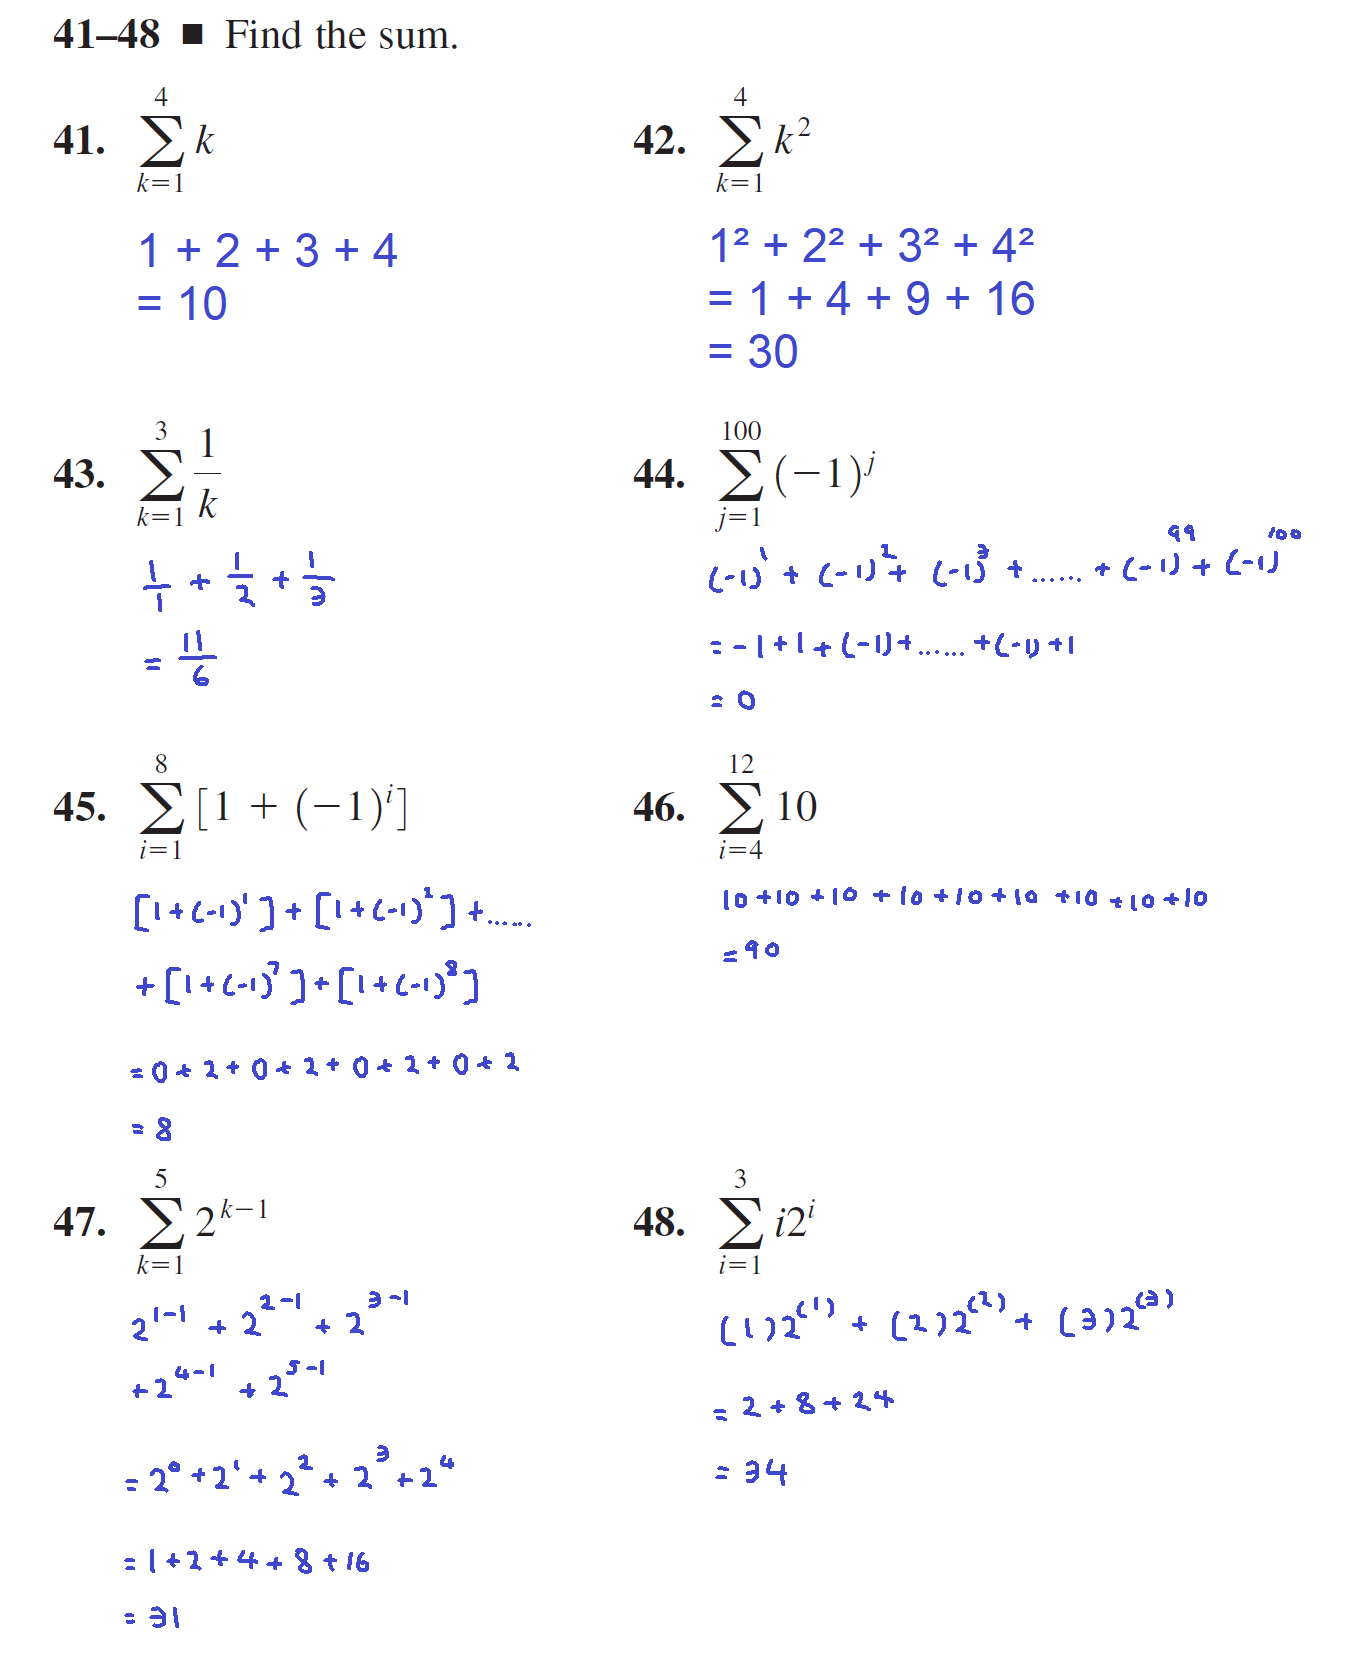 41–48 ■ Find the sum.
41. \sum_{k=1}^{4} k
1 + 2 + 3 + 4
= 10
42. \sum_{k=1}^{4} k²
1² + 2² + 3² + 4²
= 1 + 4 + 9 + 16
= 30
43. \sum_{k=1}^{3} \frac{1}{k}
\frac{1}{1} + \frac{1}{2} + \frac{1}{3}
= \frac{11}{6}
44. \sum_{j=1}^{100} (−1)^j
(-1)^1 + (-1)^2 + (-1)^3 + ...... + (-1)^{99} + (-1)^{100}
= -1 + 1 + (-1) + ...... + (-1) + 1
= 0
45. \sum_{i=1}^{8} [1 + (−1)^i]
[1+(-1)^1] + [1+(-1)^2] + ......
+ [1+(-1)^7] + [1+(-1)^8]
= 0 + 2 + 0 + 2 + 0 + 2 + 0 + 2
= 8
46. \sum_{i=4}^{12} 10
10 + 10 + 10 + 10 + 10 + 10 + 10 + 10 + 10
= 90
47. \sum_{k=1}^{5} 2^{k−1}
2^{1-1} + 2^{2-1} + 2^{3-1}
+ 2^{4-1} + 2^{5-1}
= 2^0 + 2^1 + 2^2 + 2^3 + 2^4
= 1 + 2 + 4 + 8 + 16
= 31
48. \sum_{i=1}^{3} i2^i
(1)2^{(1)} + (2)2^{(2)} + (3)2^{(3)}
= 2 + 8 + 24
= 34